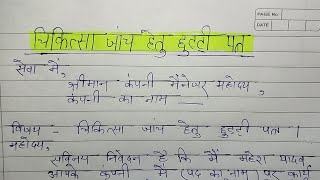 PAGE NO.
DATE
चिकित्सा जांच हेतु छुट्टी पत्र
सेवा में,
श्रीमान कंपनी मैनेजर महोदय,
कंपनी का नाम
विषय - चिकित्सा जांच हेतु छुट्टी पत्र ।
महोदय,
सविनय निवेदन है कि मैं महेश यादव
आपके कंपनी में (पद का नाम) पर कार्य